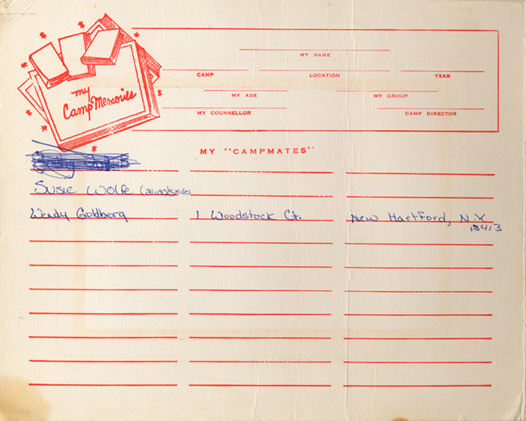 my
Camp Memories
MY NAME
CAMP LOCATION YEAR
MY AGE MY GROUP
MY COUNSELLOR CAMP DIRECTOR
MY "CAMPMATES"
Susie Wolfe
Wendy Goldberg 1 Woodstock Ct. New Hartford, N.Y.
13413